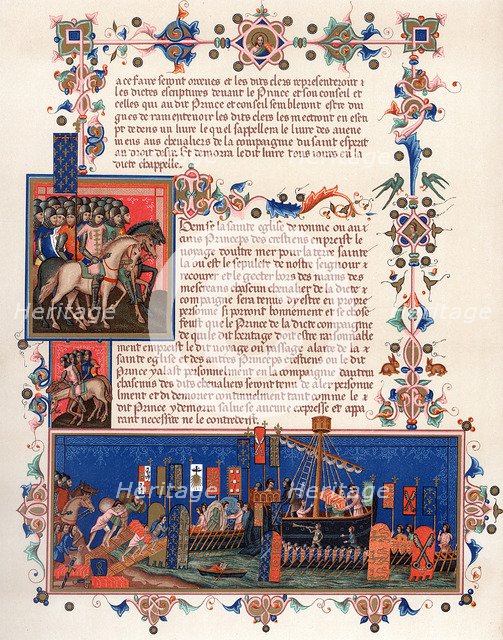 a ce faire seront ordenes et les dits clers representeront
les dictes escriptures devant le Prince et son conseil et
celles qui au dit Prince et conseil sembleront estre dig
nes de ramentenoir les dits clers les mectront en escri
pt dedens un livre le quel s'appellera le livre des avene
mens aus chevaliers de la compaignie du saint esprit
au droit desir. Et demorra le dit livre tous iours en la
dicte chappelle.
se la sainte eglise de romme ou au
tains Princeps des crestiens enpreist le
voyage d'oultre mer pour la terre sainte
la ou est le sepulcre de nostre seigneur
recourer et geecter hors des mains des
mescreans chascun chevalier de la dicte
compaignie sera tenus d'y estre en propre
personne si porront bonnement et se chose
feust que le Prince de la dicte compaignie
de qui le dit heritage doit estre
ment enpreist le dit voyage ou passage a l'aide de la
sainte eglise et des autres princeps crestiens ou le dit
Prince y alast personnelment en la compaignie d'autrui
chascuns des dits chevaliers seront tenus de aler personne
ment et di demorer continuelment tant comme le
dit Prince y demorra sauf se aucune expresse et appa
rant necessite ne le contredeist.
Heritage
Heritage
Heritage
Heritage
Heritage
Heritage